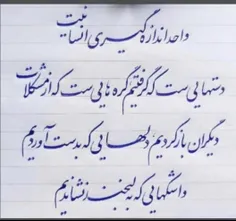 واحد اندازه گیری انسانیت
دستهایی ست که گرفتیم گره هایی ست که از مشکلات
دیگران باز کردیم، دلهایی که بدست آوردیم
و اشکهایی که به لبخند نشاندیم